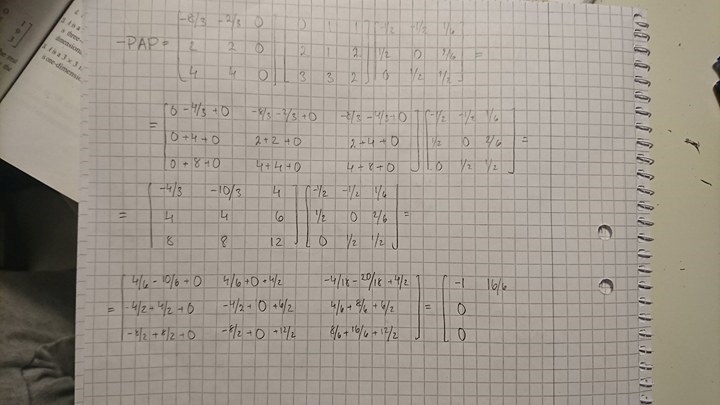 -8/3 -2/3 0 0 1 1 -1/2 -1/2 1/6
-PAP = 2 2 0 2 1 2 1/2 0 2/6 =
4 4 0 3 3 2 0 1/2 1/2
0 - 4/3 + 0 -8/3 - 2/3 + 0 -8/3 - 4/3 + 0 -1/2 -1/2 1/6
= 0 + 4 + 0 2 + 2 + 0 2 + 4 + 0 1/2 0 2/6 =
0 + 8 + 0 4 + 4 + 0 4 + 8 + 0 0 1/2 1/2
-4/3 -10/3 4 -1/2 -1/2 1/6
= 4 4 6 1/2 0 2/6 =
8 8 12 0 1/2 1/2
4/6 - 10/6 + 0 4/6 + 0 + 4/2 -4/18 - 20/18 + 4/2 -1 16/6
= -4/2 + 4/2 + 0 -4/2 + 0 + 6/2 4/6 + 8/6 + 6/2 = 0
-8/2 + 8/2 + 0 -8/2 + 0 + 12/2 8/6 + 16/6 + 12/2 0